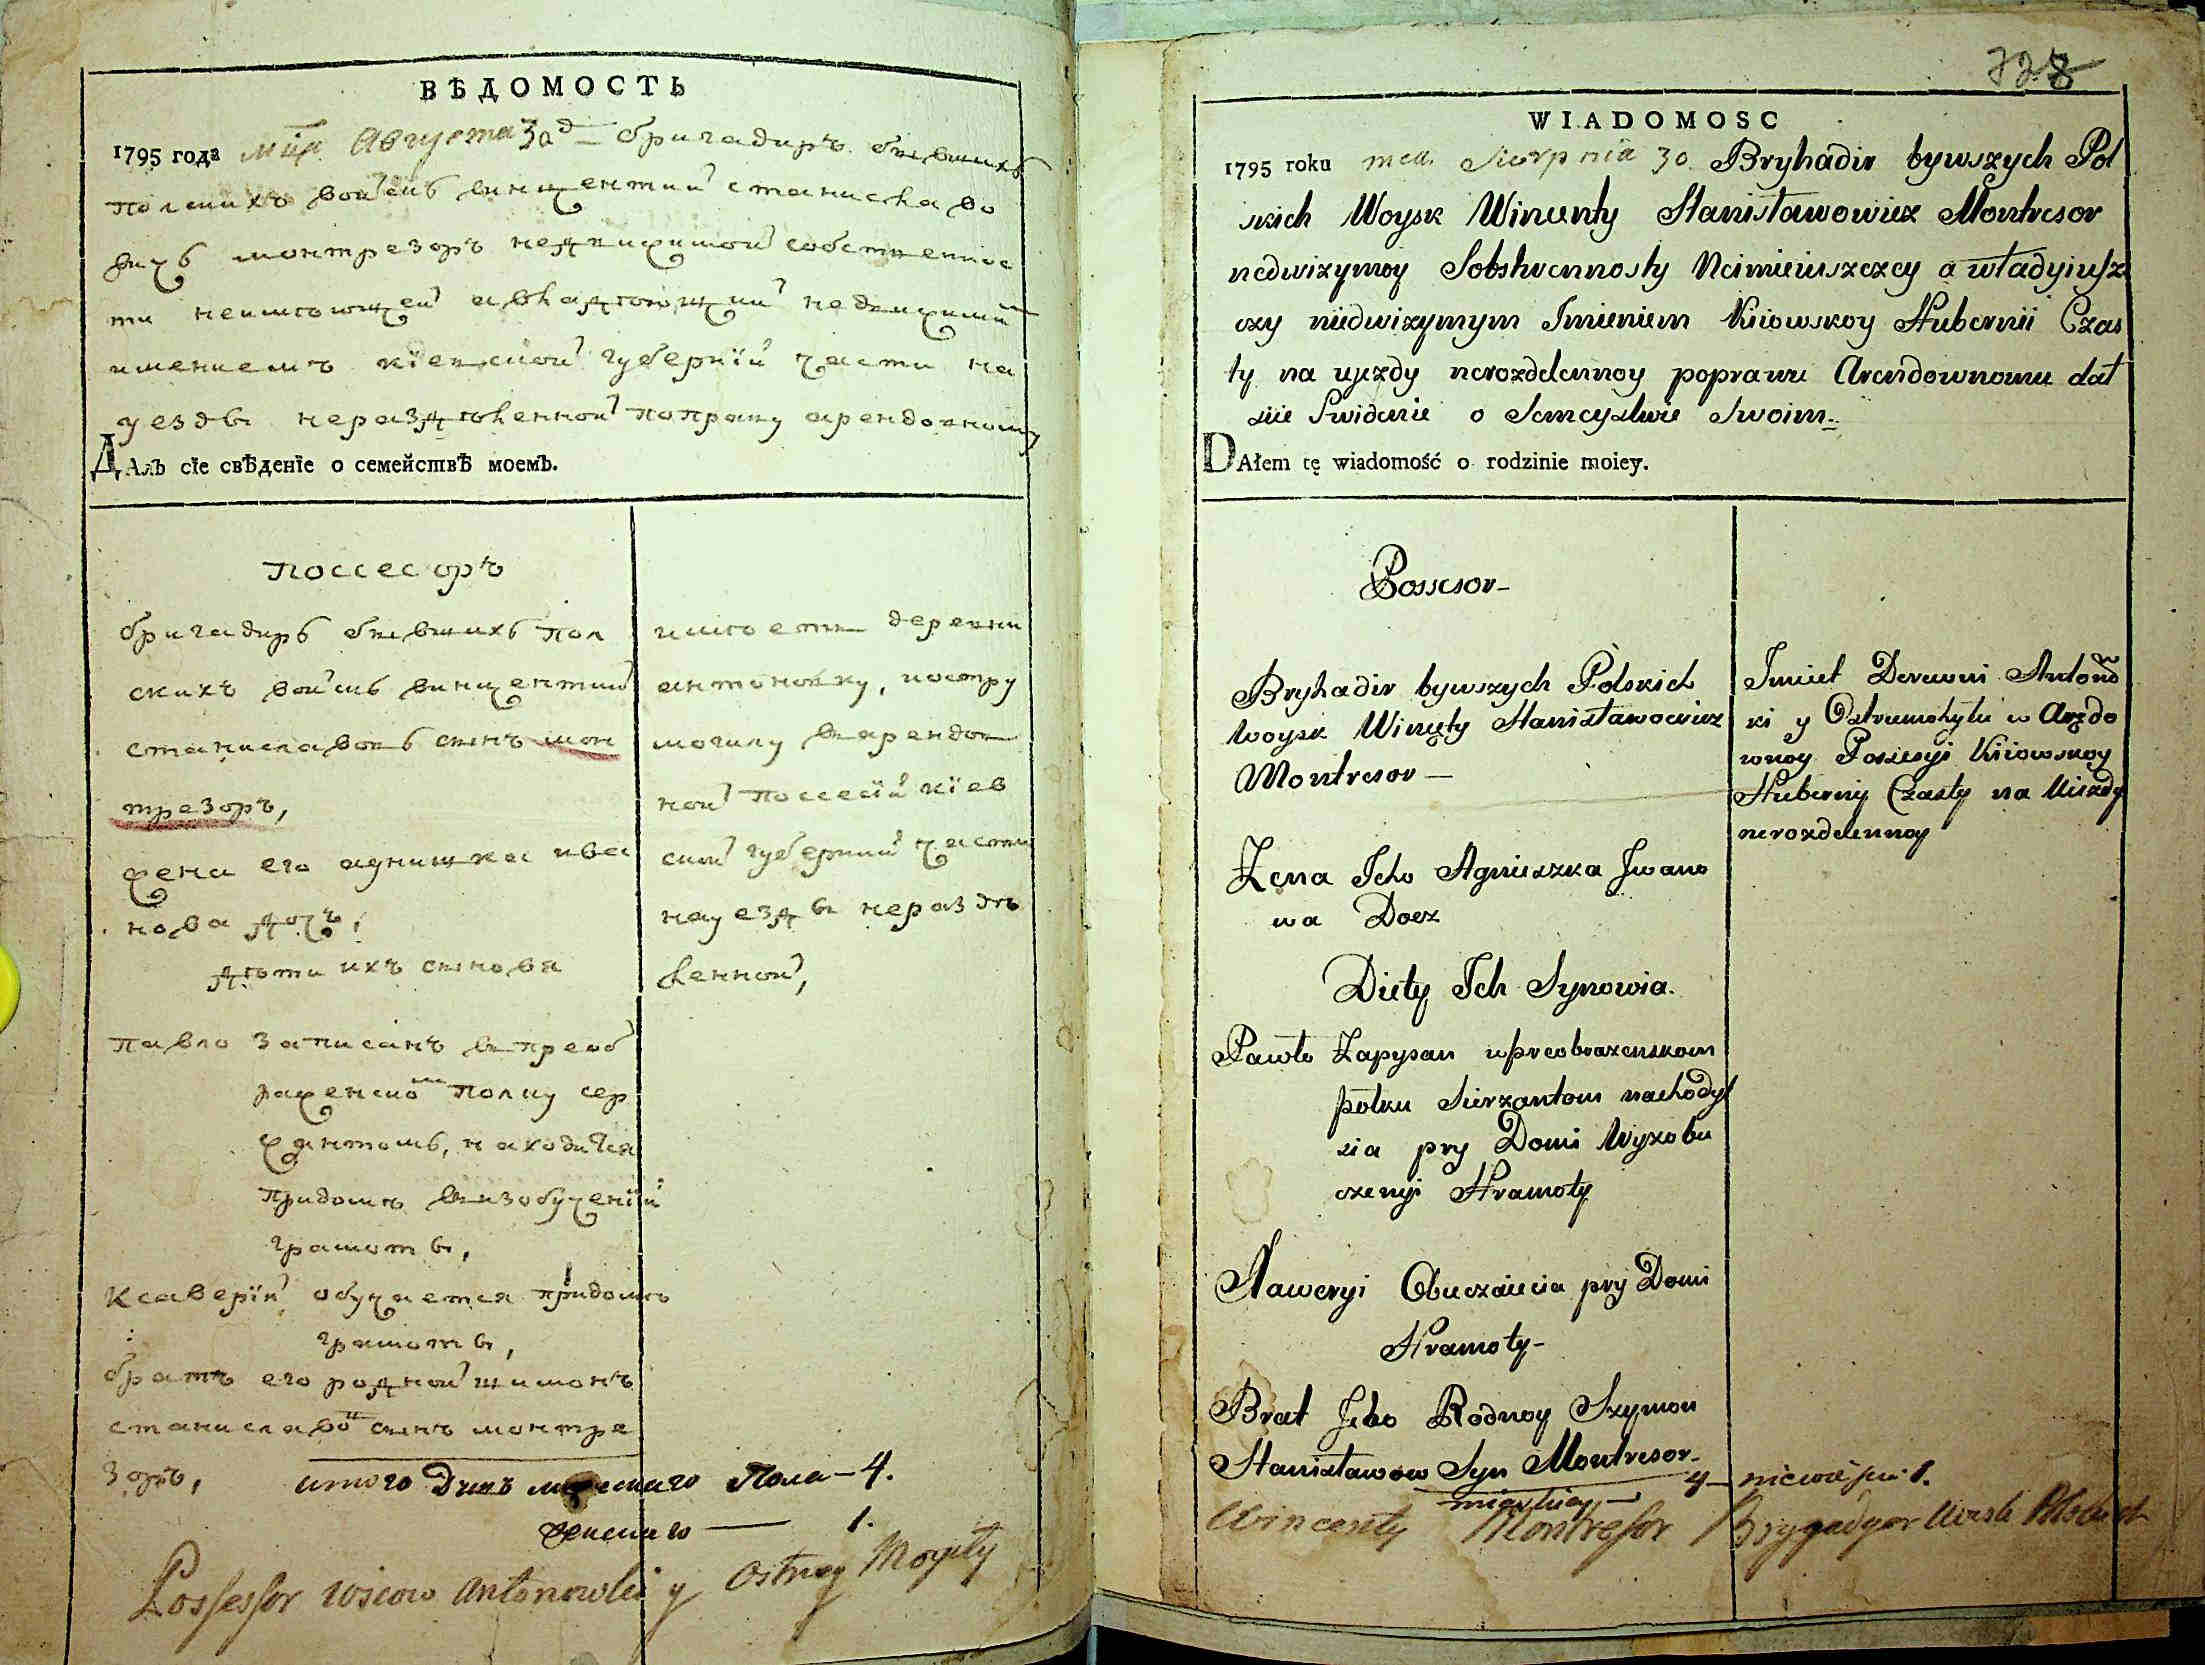 ВѢДОМОСТЬ
1795 года мца Августа 30 д бригадиръ бывшихъ
полскихъ войскъ винцентий станиславо
вичъ монтрезоръ недвижимой собственнос
ти неимеющей авладеющий недвижимимъ
имениемъ кїевской губернїй части на
уезды нераздѣленной поправу арендовному
ДАлъ сїе свѣденїе о семействѣ моемъ.
поссесоръ
бригадиръ бывшихъ пол
скихъ войскъ винцентий
станиславовъ сынъ мон
трезоръ,
жена его агнишка ива
нова дочъ,
дѣти ихъ сыновя
павло записанъ впреоб
раженскомъ полку сер
жантомъ, находится
придомѣ визобученїй
грамоты,
Ксаверїй обучается придомѣ
грамоты,
братъ его родной шимонъ
станиславовъ сынъ монтре
зоръ,
имѣетъ деревни
антоновку, иостру
могилу варендов
ной поссесїй кїев
ской губерний части
науезды нераздѣ
ленной,
итого Душъ мужеска Пола - 4.
женска — 1.
Possessor wsiow Antonowki y Ostrey Mogiły
728
WIADOMOSC
1795 roku mca Sierpnia 30 Bryhadir bywszych Pol
skich Woysk Wincenty Stanisławowicz Montresor
nedwizymoy Sobstwennosty Neimieiuszczey a władyiusz
czy niedwizymym Imieniem Kiiowskoy Hubernii Czas
ty na ujezdy nerozdelennoy poprawu Arendownomu dał
siie Swidenie o Semeystwie Swoim.
DAłem tę wiadomość o rodzinie moiey.
Possesor
Bryhadir bywszych Polskich
Woysk Wincęty Stanisławowicz
Montresor —
Zena Jeho Agnieszka Iwano
wa Docz
Diety Ich Synowia.
Pawło Zapysan wpreobrazenskom
połku Sierzantom nachodył
sia pry Domi Wyzobu
czenyi Hramoty
Xaweryi Obuczaiecia pry Domi
Hramoty -
Brat Jeho Rodnoy Szymon
Stanisławow Syn Montresor.
Imiiet Derewni Antonó
ki y Ostrumohyłu w Arędo
wnoy Possesyi Kiiowskoy
Huberny Czasty na Uiezdy
nerozdelennoy
4 — 1.
Wincenty Montresor Brygadyer Woysk Polskich